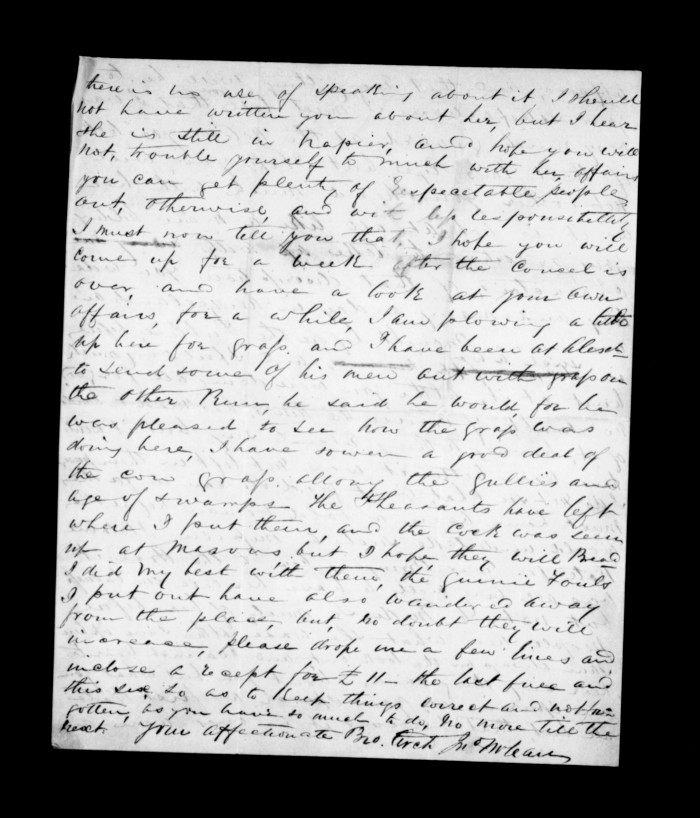 there is no use of speaking about it I should
not have written you about her, but I hear
she is still in Napier, and hope you will
not, trouble yourself to much with her affairs
you can get plenty of respectable people
out, otherwise, and wit responsibility
I must now tell you that, I hope you will
come up for a week after the Concel is
over, and have a look at your own
affairs, for a while, I am plowing a little
up here for grass. and I have been at Alesck
to send some of his men out with grass on
the other Run, he said he would, for he
was pleased to see how the grass was
doing here, I have sowen a good deal of
the cow grass allong the Gullies and
age of swamps the Pheasants have left
where I put them, and the Cock was seen
up at Masons but I hope they will Breed
I did my best with them, the guinie Fouls
I put out have also wander'd away
from the place, but, no doubt they will
increase, please drope me a few lines and
inclose a recept for £ 11 the last five and
this six so as to keep things correct and not for-
gotten, as you have so much to do, no more till the
next. Your affectionate Bro. Arch Jno McLean